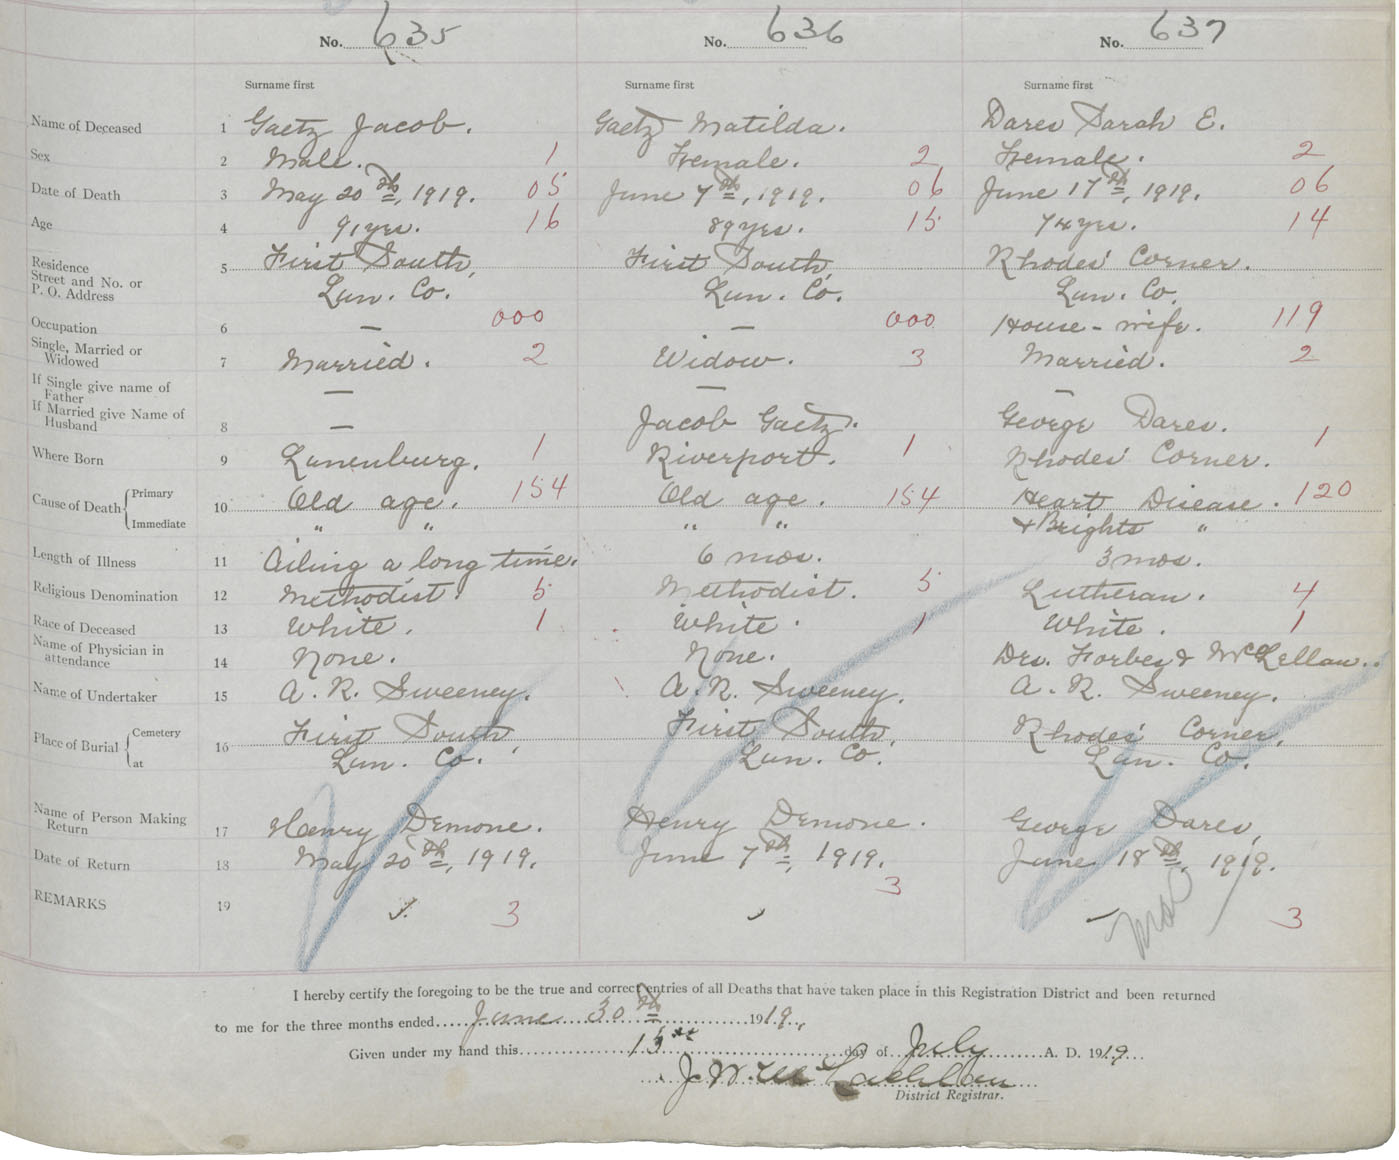 No. 635 No. 636 No. 637
Surname first Surname first Surname first
Name of Deceased 1 Gaetz Jacob. Gaetz Matilda. Dares Sarah E.
Sex 2 Male. 1 Female. 2 Female. 2
Date of Death 3 May 20th, 1919. 05 June 7th, 1919. 06 June 17th, 1919. 06
Age 4 91 yrs. 16 89 yrs. 15 74 yrs. 14
Residence
Street and No. or
P. O. Address
5 First South, First South, Rhodes' Corner.
Lun. Co. Lun. Co. Lun. Co.
Occupation 6 — 000 — 000 House-wife. 119
Single, Married or
Widowed
7 Married. 2 Widow. 3 Married. 2
If Single give name of
Father
— — —
If Married give Name of
Husband
8 — Jacob Gaetz. George Dares.
Where Born 9 Lunenburg. 1 Riverport. 1 Rhodes' Corner. 1
Cause of Death { Primary 10 Old age. 154 Old age. 154 Heart Disease. 120
Immediate " " " " & Brights "
Length of Illness 11 Ailing a long time. 6 mos. 3 mos.
Religious Denomination 12 Methodist. 5 Methodist. 5 Lutheran. 4
Race of Deceased 13 White. 1 White. 1 White. 1
Name of Physician in
attendance
14 None. None. Drs. Forbes & McLellan.
Name of Undertaker 15 A. R. Sweeney. A. R. Sweeney. A. R. Sweeney.
Place of Burial { Cemetery
at
16 First South, First South, Rhodes' Corner,
Lun. Co. Lun. Co. Lun. Co.
Name of Person Making
Return
17 Henry Demone. Henry Demone. George Dares,
Date of Return 18 May 20th, 1919. June 7th, 1919. June 18th, 1919.
REMARKS 19 3 3 3
I hereby certify the foregoing to be the true and correct entries of all Deaths that have taken place in this Registration District and been returned
to me for the three months ended June 30th 1919.
Given under my hand this 15th day of July A. D. 1919
J. W.
District Registrar.